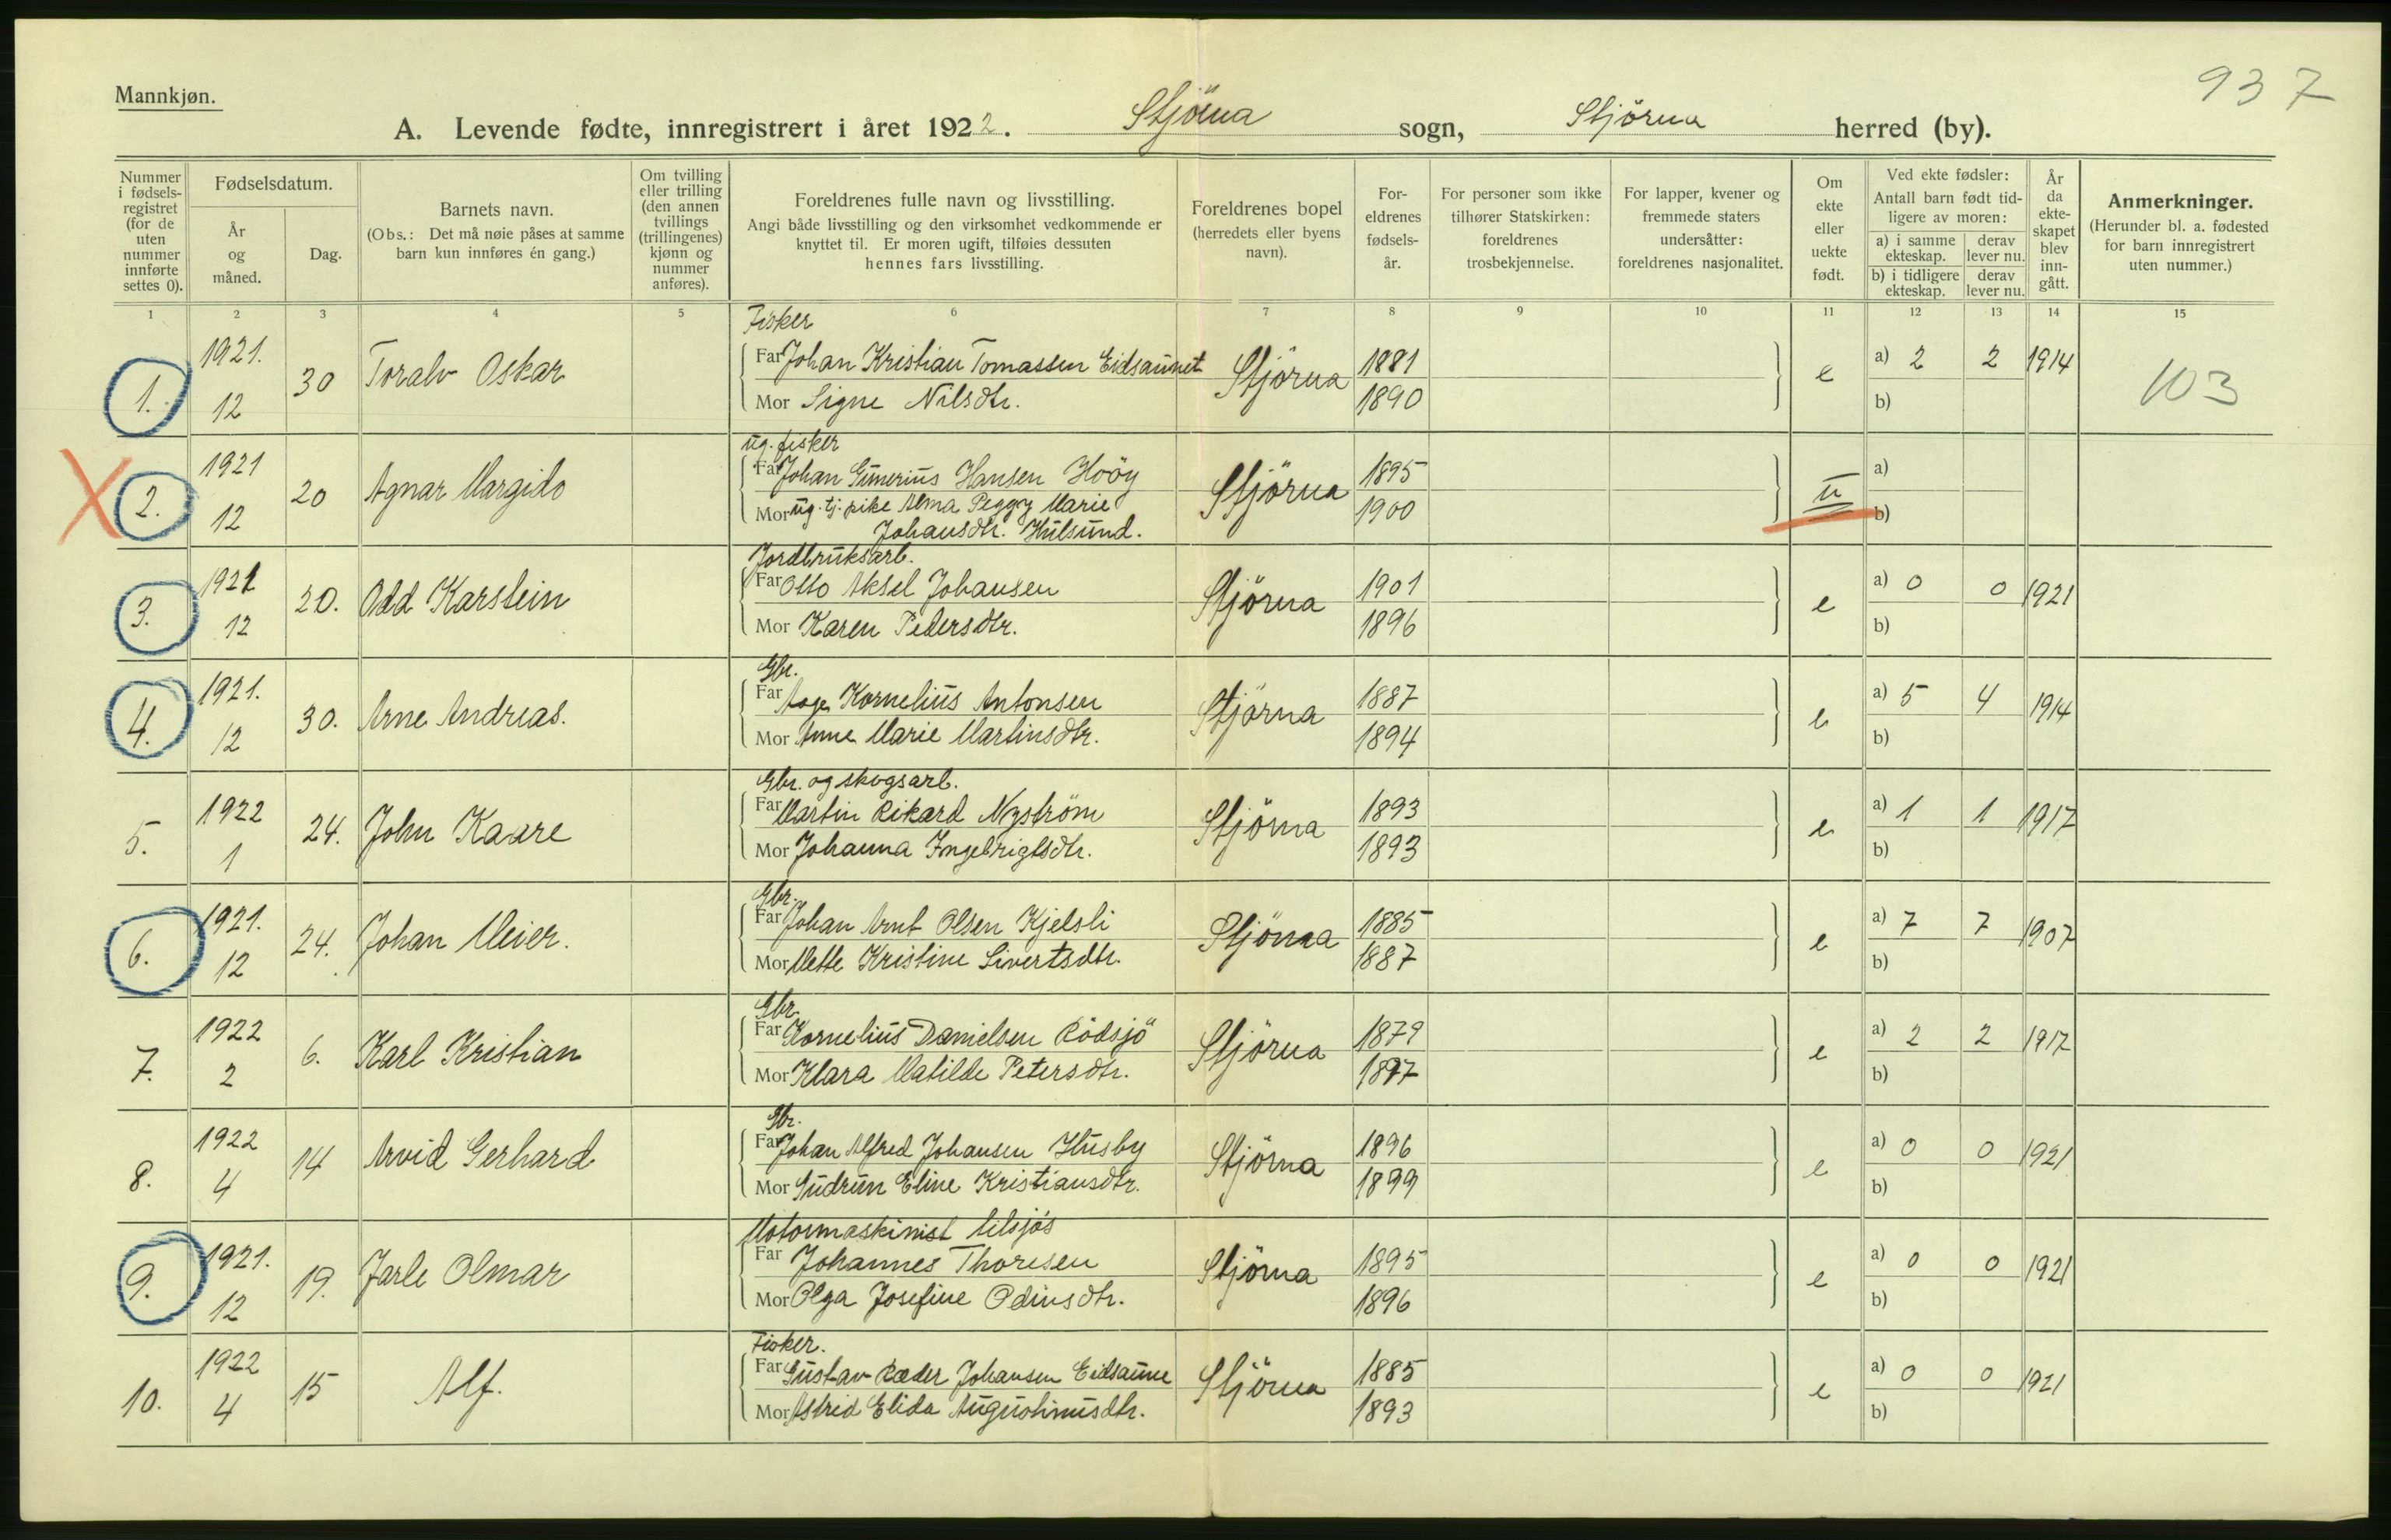 937
Mannkjøn.
A. Levende fødte, innregistrert i året 1922. Stjörna sogn, Stjörna herred (by).
Nummer i fødselsregistret (for de uten nummer innførte settes 0).
Fødselsdatum.
År og måned.
Dag.
Barnets navn.
(Obs.: Det må nøie påses at samme barn kun innføres én gang.)
Om tvilling eller trilling (den annen tvillings (trillingenes) kjønn og nummer anføres).
Foreldrenes fulle navn og livsstilling.
Angi både livsstilling og den virksomhet vedkommende er knyttet til. Er moren ugift, tilføies dessuten hennes fars livsstilling.
Foreldrenes bopel (herredets eller byens navn).
Foreldrenes fødselsår.
For personer som ikke tilhører Statskirken: foreldrenes trosbekjennelse.
For lapper, kvener og fremmede staters undersåtter: foreldrenes nasjonalitet.
Om ekte eller uekte født.
Ved ekte fødsler:
Antall barn født tidligere av moren:
a) i samme ekteskap. derav lever nu.
b) i tidligere ekteskap. derav lever nu.
År da ekteskapet blev inngått.
Anmerkninger.
(Herunder bl. a. fødested for barn innregistrert uten nummer.)
1 2 3 4 5 6 7 8 9 10 11 12 13 14 15
Fisker
1. 1921. 12 30 Toralv Oskar Far Johan Kristian Tomassen Eidsaunet Stjörna 1881 e a) 2 2 1914 103
Mor Signe Nilsdtr. 1890 b)
ug. fisker
X 2. 1921 12 20 Agnar Margido Far Johan Gunerius Hansen Hoöy Stjörna 1895 u a)
Mor ug. tj. pike Alma Peggy Marie 1900 b)
Johansdtr. Hulsund.
Jordbruksarb.
3. 1921 12 20. Odd Karstein Far Otto Aksel Johansen Stjörna 1901 e a) 0 0 1921
Mor Karen Pedersdtr. 1896 b)
Gbr.
4. 1921. 12 30. Arne Andreas. Far Aage Kornelius Antonsen Stjörna 1887 e a) 5 4 1914
Mor Anne Marie Martinsdtr. 1894 b)
Gbr. og skogsarb.
5. 1922 1 24. John Kaare Far Martin Rikard Nyström Stjörna 1893 e a) 1 1 1917
Mor Johanna Ingebrigtsdtr. 1893 b)
Gbr.
6. 1921. 12 24. Johan Meier. Far Johan Arnt Olsen Kjelsli Stjörna 1885 e a) 7 7 1907
Mor Mette Kristine Sivertsdtr. 1887 b)
Gbr.
7. 1922 2 6. Karl Kristian Far Kornelius Danielsen Rödsjö Stjörna 1879 e a) 2 2 1917
Mor Klara Matilde Petersdtr. 1897 b)
Gbr.
8. 1922 4 14 Arvid Gerhard Far Johan Alfred Johansen Husby Stjörna 1896 e a) 0 0 1921
Mor Gudrun Eline Kristiansdtr. 1899 b)
Motormaskinist tilsjös
9. 1921. 12 19. Jarle Olmar Far Johannes Thoresen Stjörna 1895 e a) 0 0 1921
Mor Olga Josefine Odinsdtr. 1896 b)
Fisker.
10. 1922 4 15 Alf. Far Gustav Ræder Johansen Eidsaune Stjörna 1885 e a) 0 0 1921
Mor Astrid Elida Augustinusdtr. 1893 b)